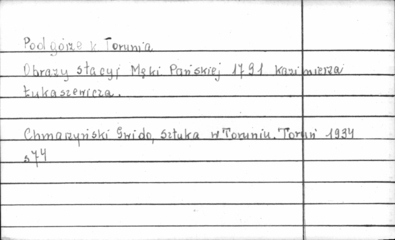 Podgórze k Torunia
Obrazy stacyj Męki Pańskiej 1791 Kazimierza
Łukaszewicza.
Chmarzyński Gwido, Sztuka w Toruniu. Toruń 1934
s 74